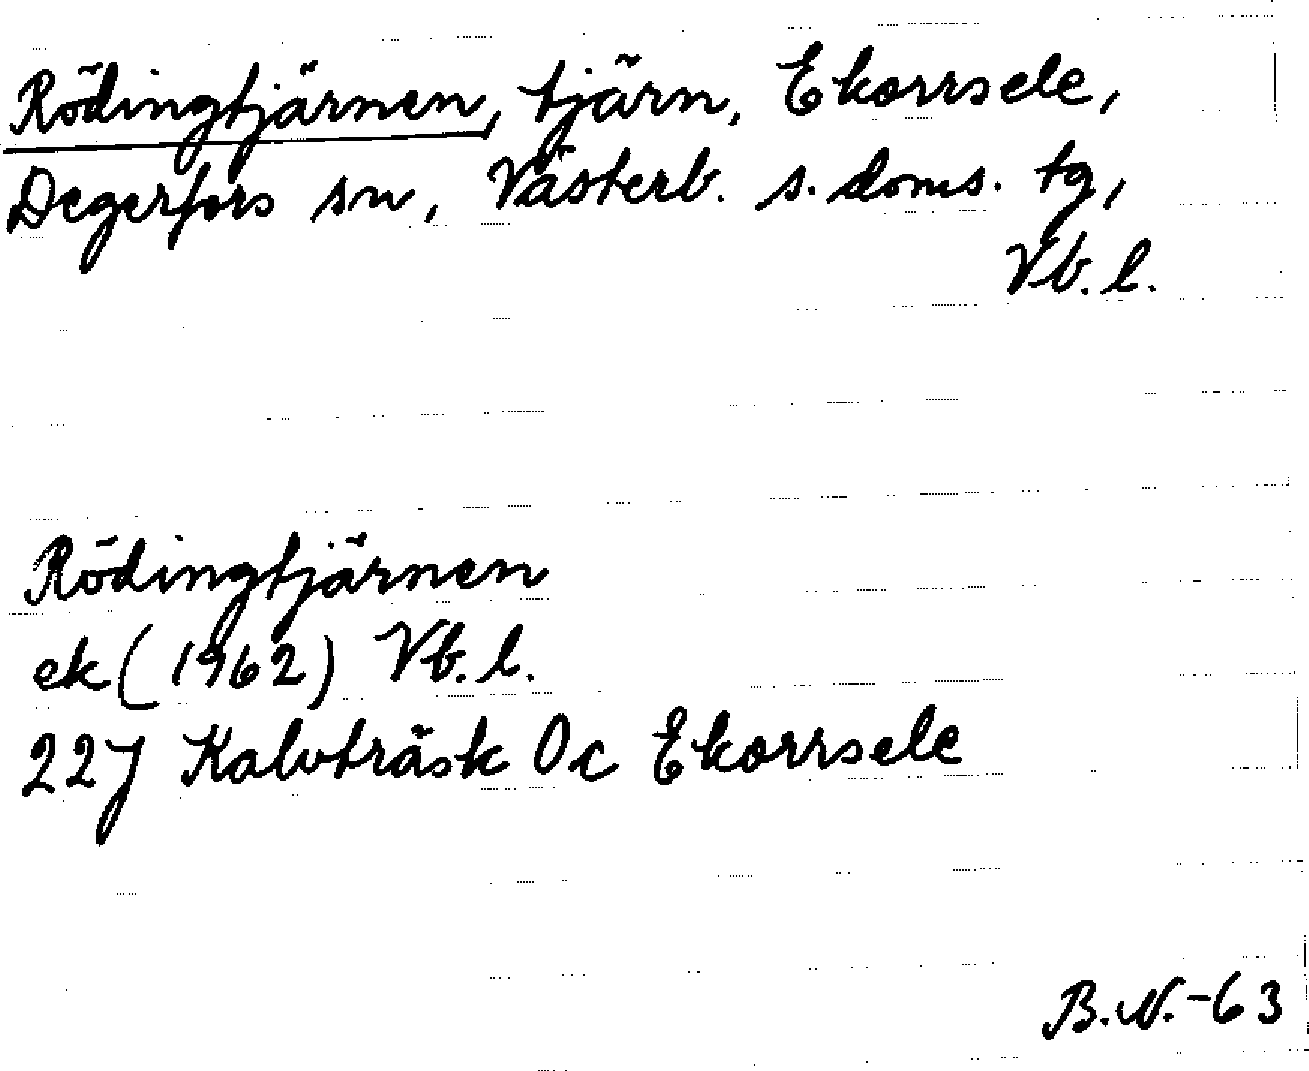 Rödingtjärnen, tjärn, Ekorrsele,
Degerfors sn, Västerb. s. doms. tg,
Vb. l.
Rödingtjärnen
ek (1962) Vb. l.
22J Kalvträsk 0c Ekorrsele
B.N.-63